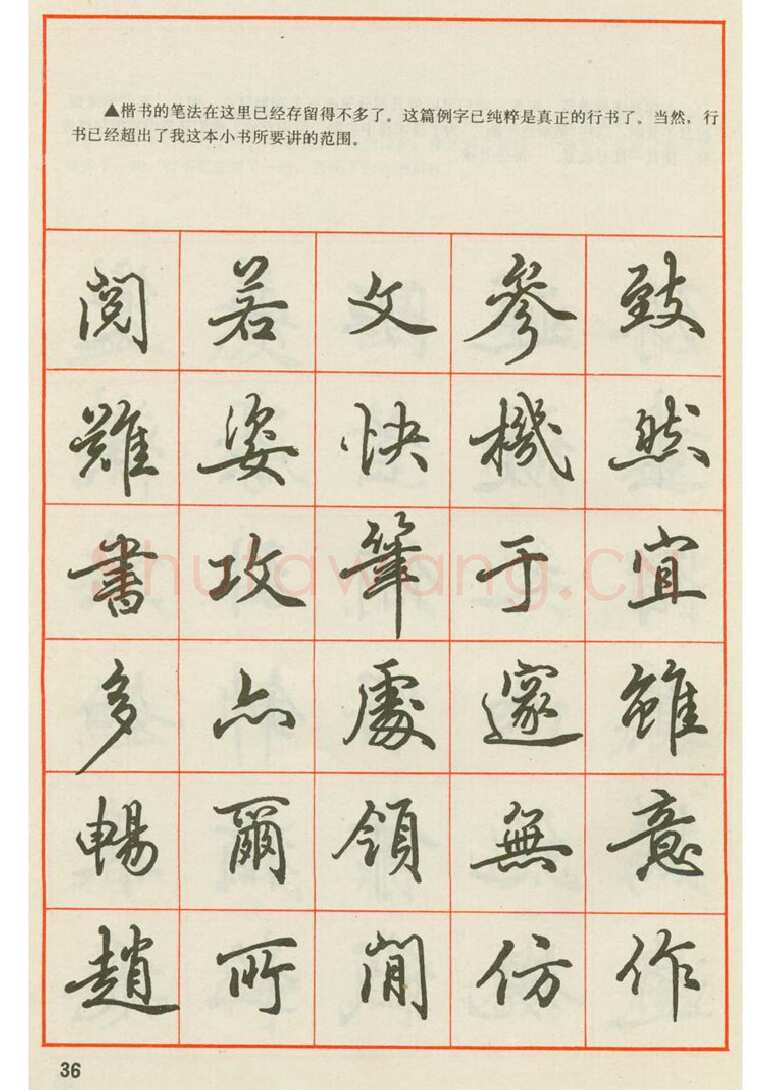 ▲楷书的笔法在这里已经存留得不多了。这篇例字已纯粹是真正的行书了。当然，行
书已经超出了我这本小书所要讲的范围。
致然宜雖意作
參機于邃無仿
文快筆處領閒
若姿攻亦爾所
閱難書多暢趙
Shufawang.CN
36